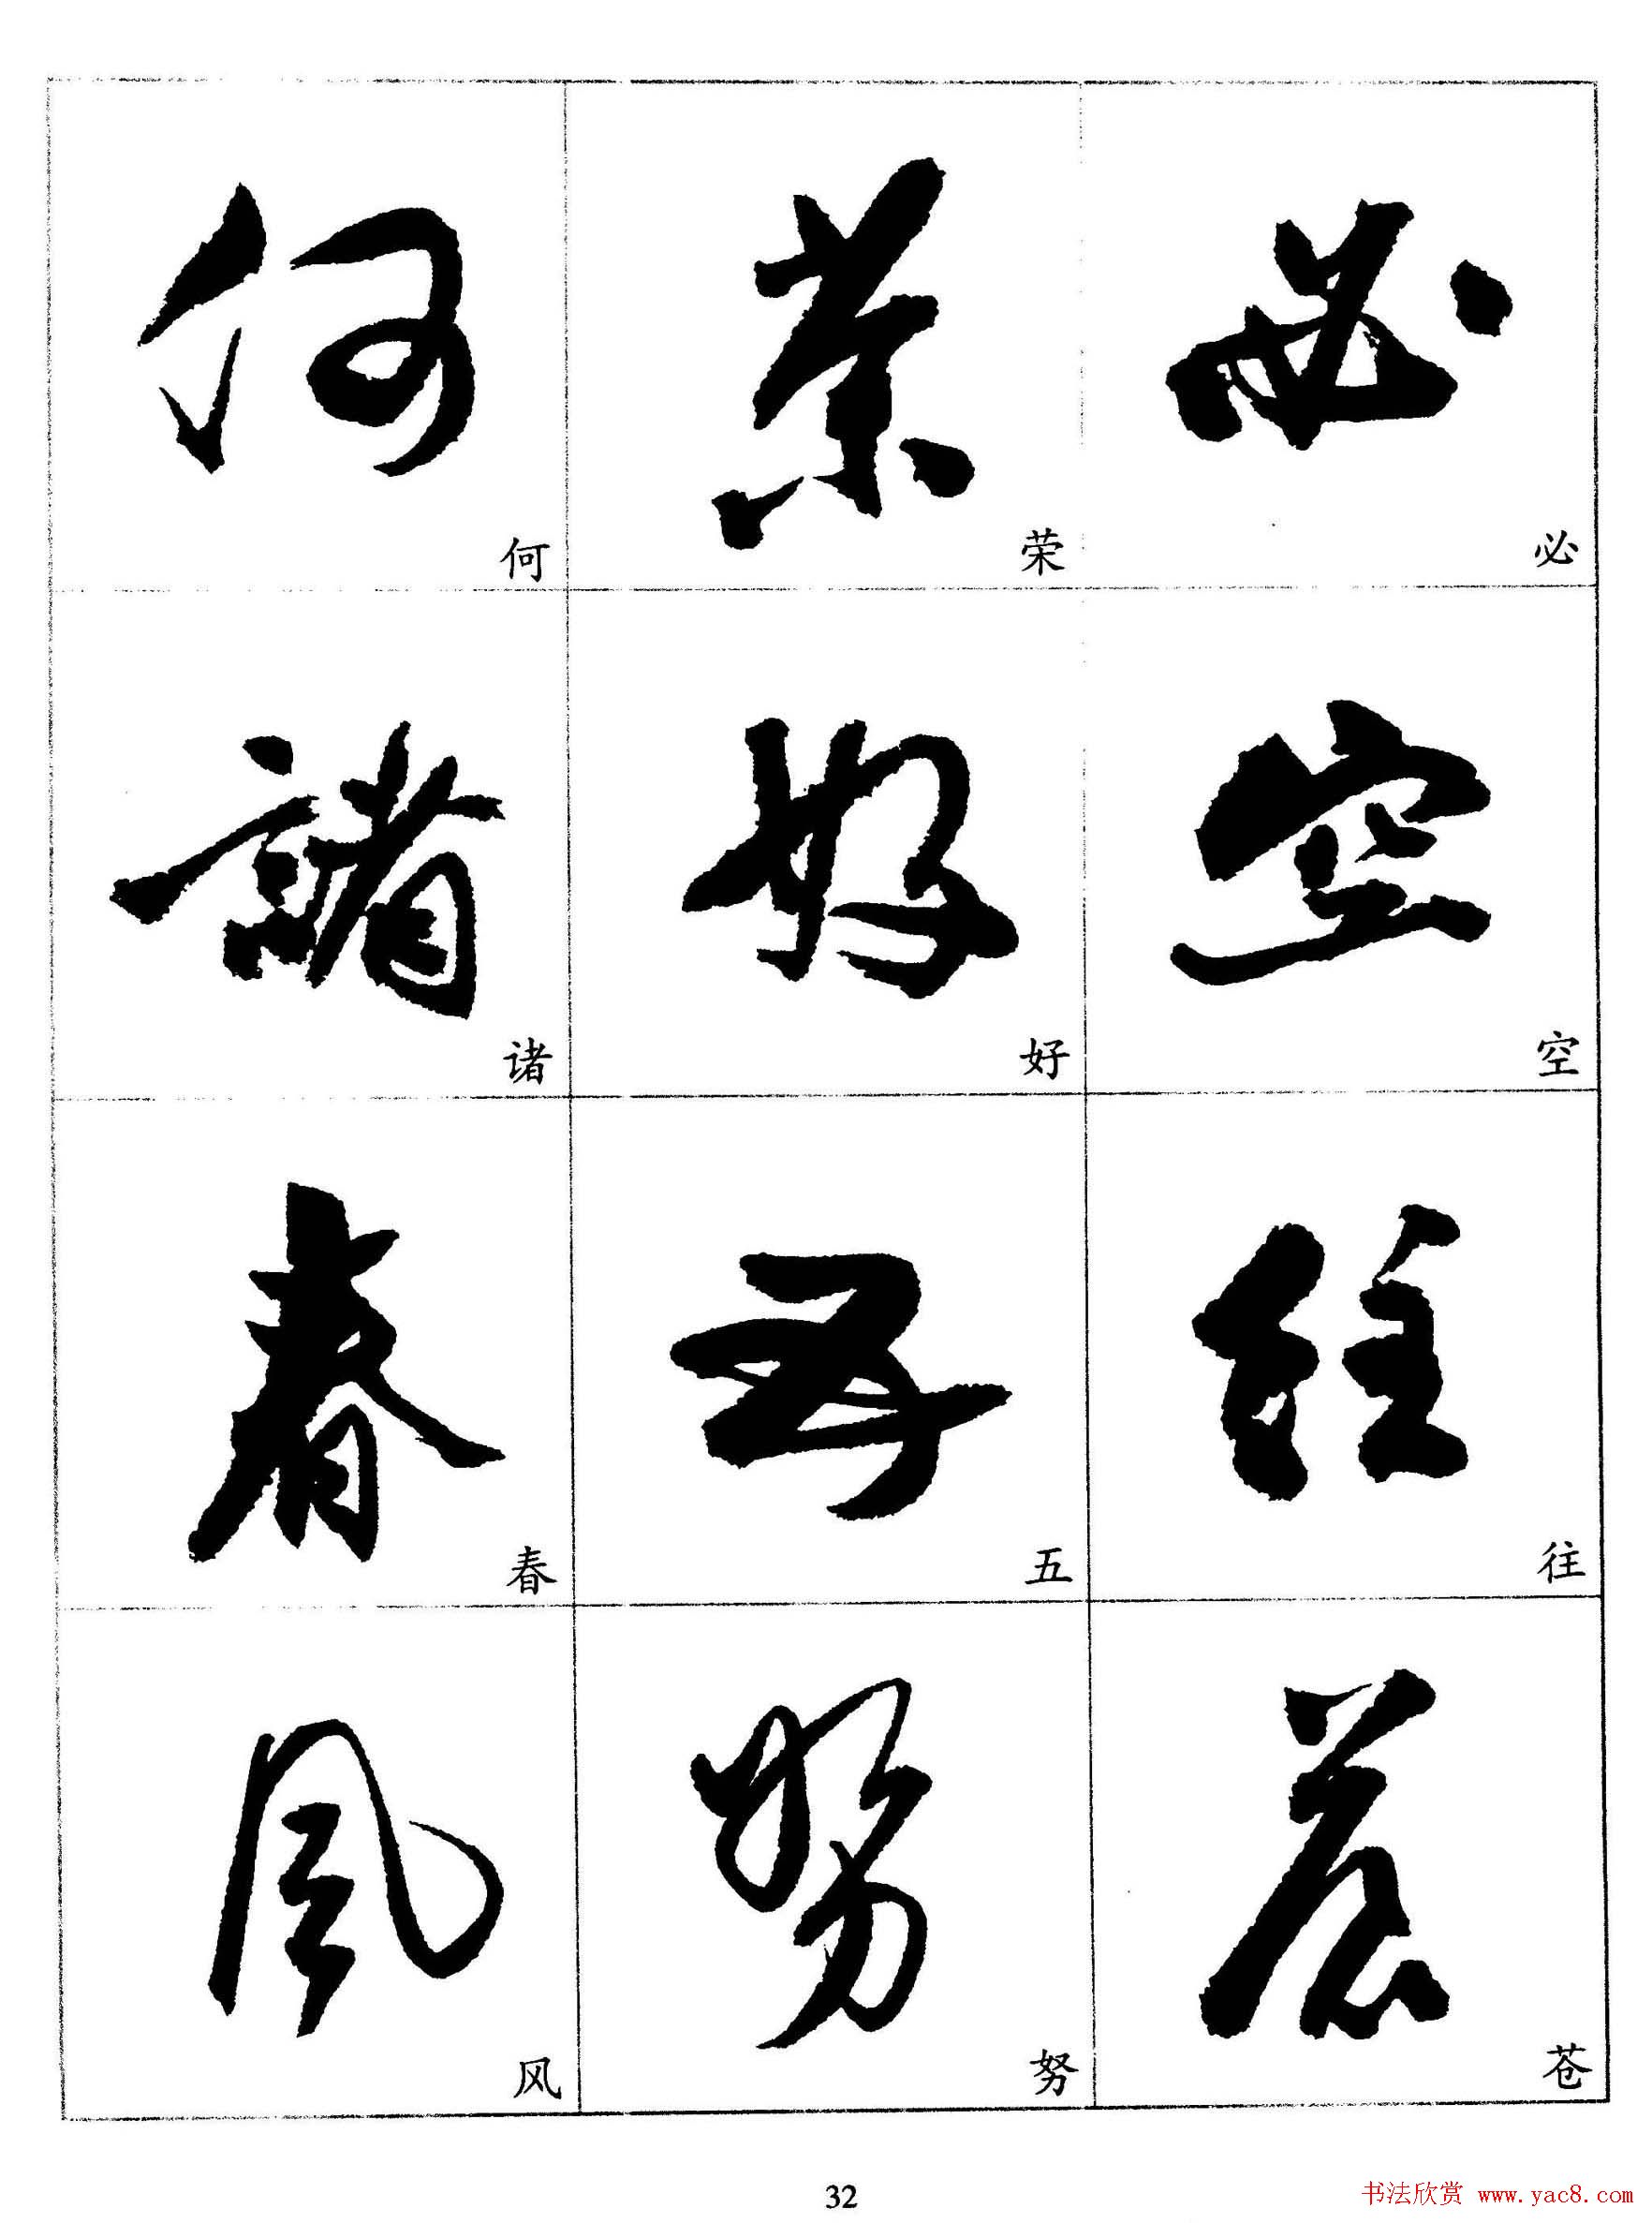 必
空
往
苍
荣
好
五
努
何
诸
春
风
32
书法欣赏 www.yac8.com